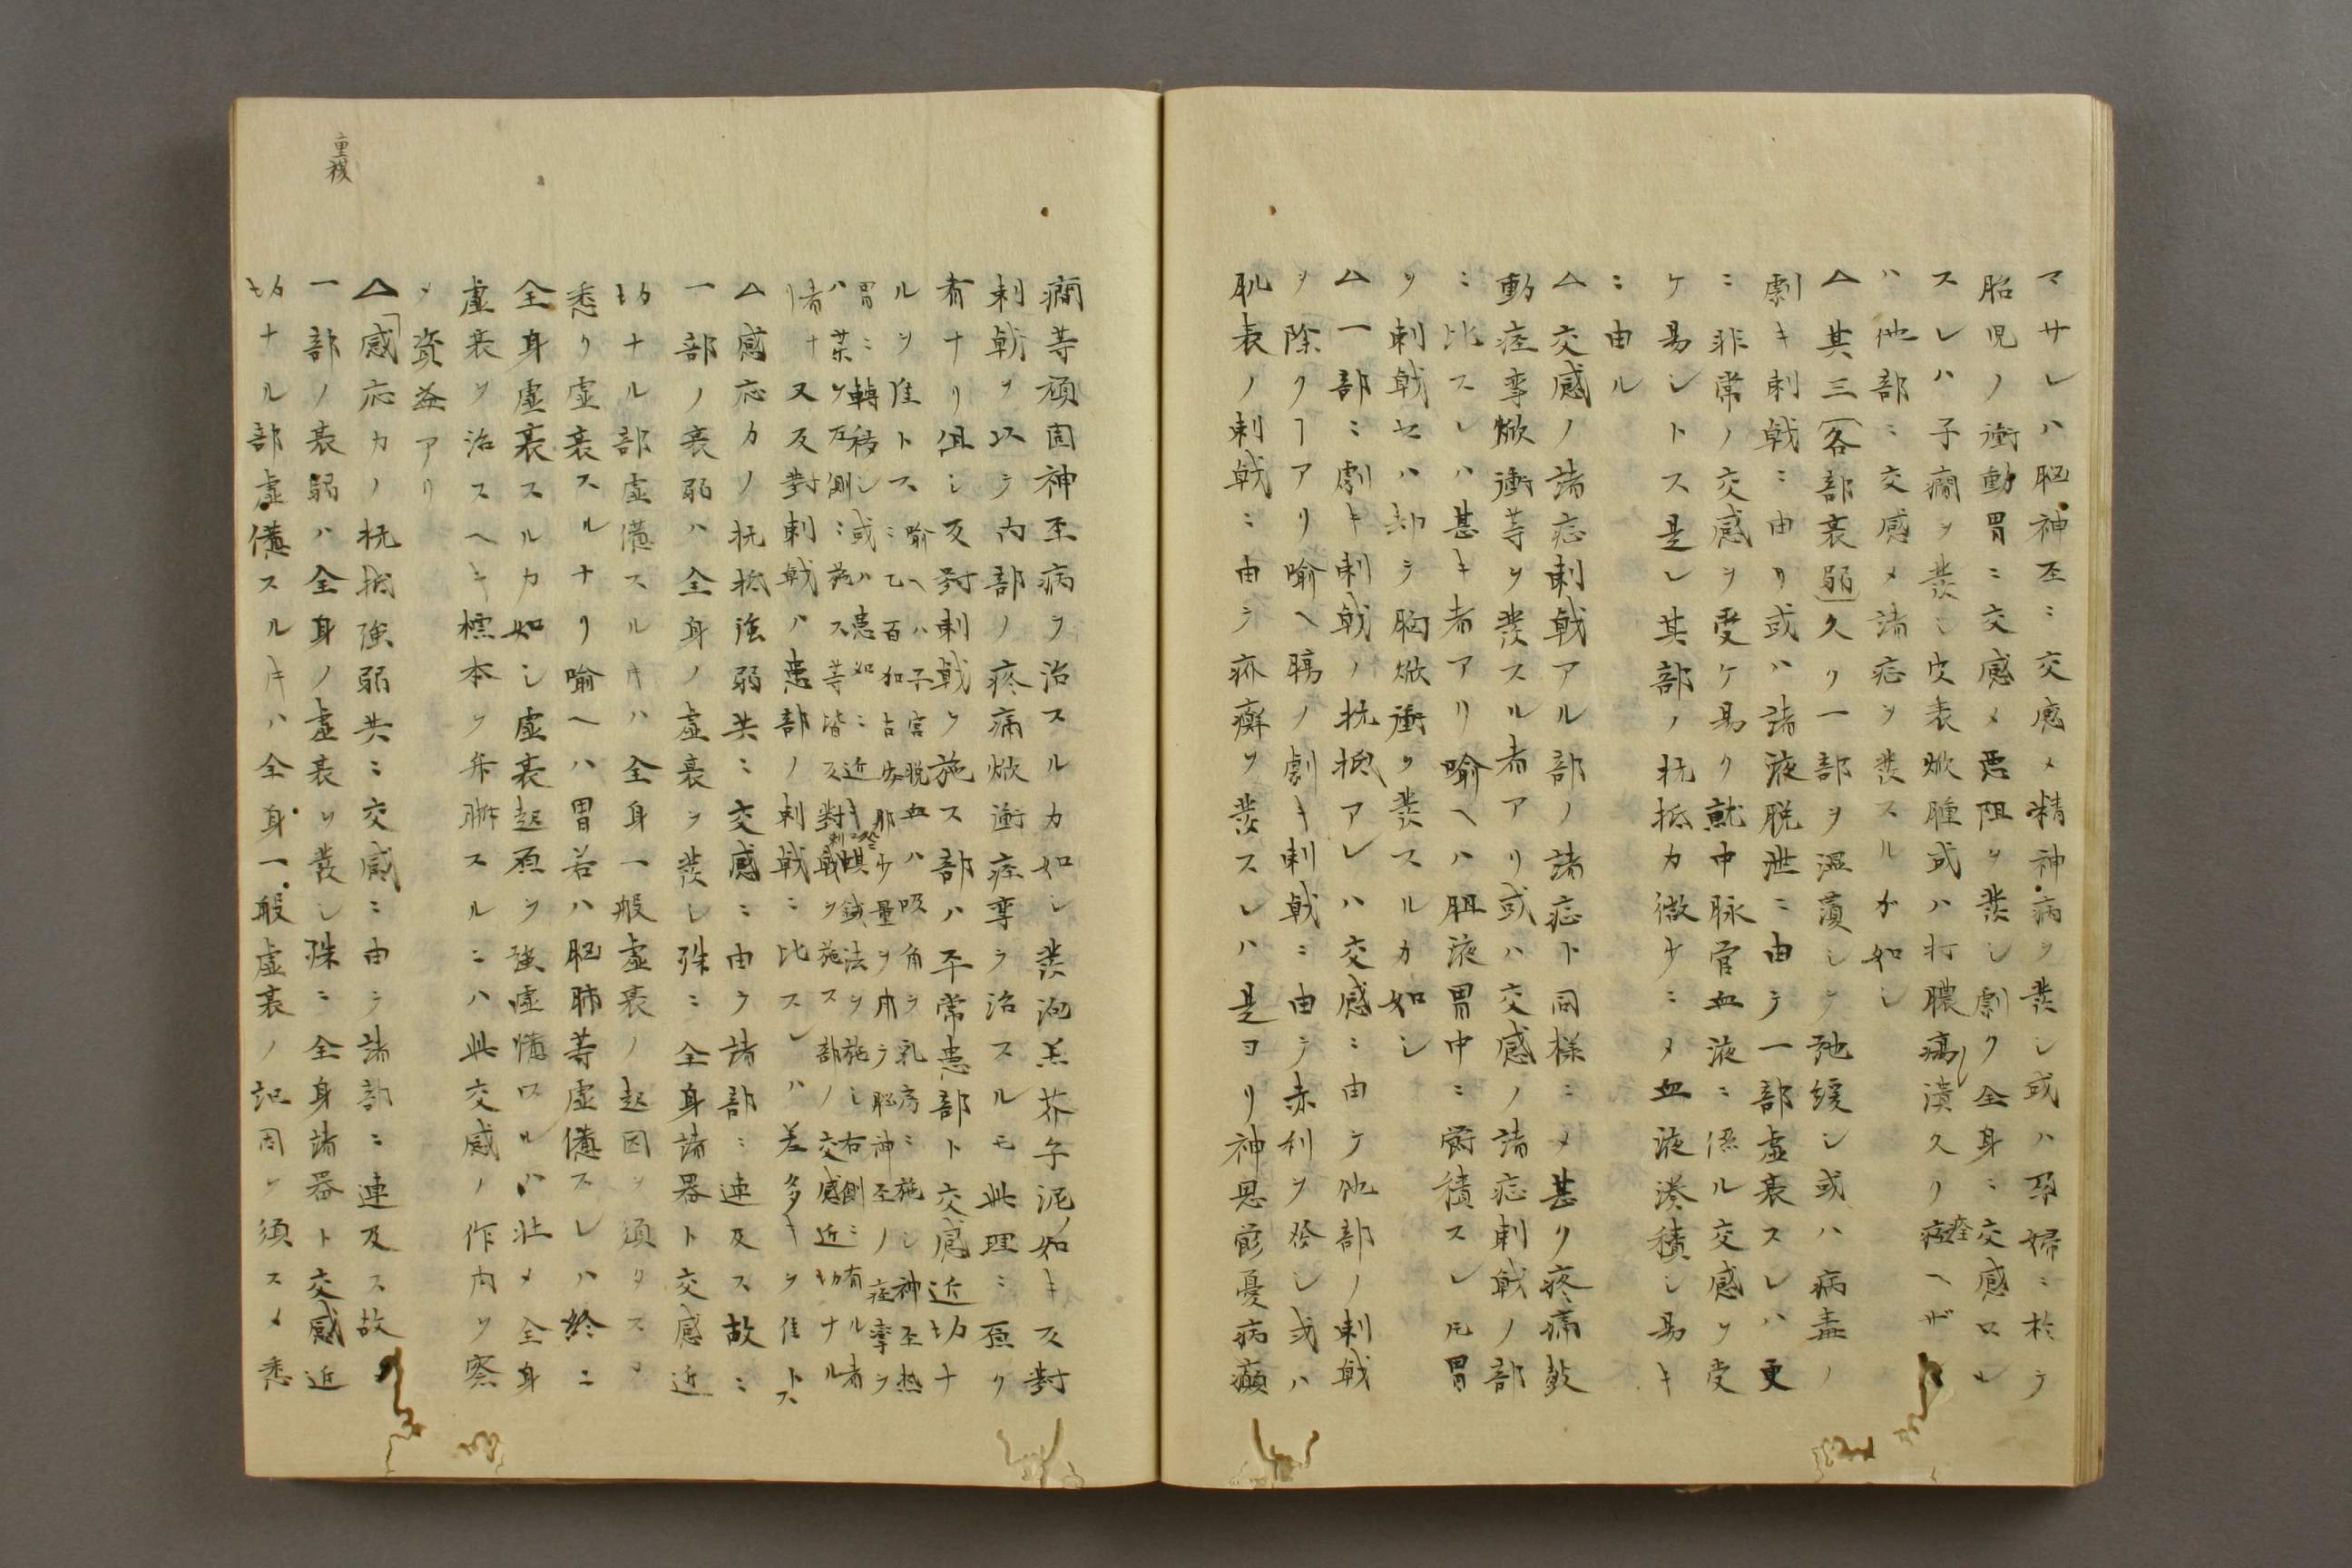 マサレハ脳神巠ニ交感メ精神病ヲ発シ或ハ孕婦ニ於テ
胎児ノ衝動胃ニ交感メ悪阻ヲ発シ劇ク全身ニ交感ロル
スレハ子癇ヲ発シ皮表焮腫或ハ打膿瘍潰久ク痊ヘザ
ハ他部ニ交感メ諸症ヲ発スルカ如シ
△其三各部衰弱久ク一部ヲ温蒸シテ弛緩シ或ハ病毒ノ
劇キ刺戟ニ由リ或ハ諸液脱泄ニ由テ一部虚衰スレハ更
ニ非常ノ交感ヲ受ケ易ク就中脉管血液ニ係ル交感ヲ受
ケ易シトス是レ其部ノ抗抵力微少ニメ血液湊積シ易キ
ニ由ル
△交感ノ諸症刺戟アル部ノ諸症ト同様ニメ甚ク疼痛鼓
動痙攣焮衝等ヲ発スル者アリ或ハ交感ノ諸症刺戟ノ部
ニ比スレハ甚キ者アリ喩ヘハ胆液胃中ニ欝積スレ𪜈胃
ヲ刺戟セハ却テ胸焮衝ヲ発スルカ如シ
△一部ニ劇キ刺戟ノ抗抵アレハ交感ニ由テ他部ノ刺戟
ヲ除クヿアリ喩ヘ腸ノ劇キ刺戟ニ由テ赤利ヲ発シ或ハ
肌表ノ刺戟ニ由テ疥癬ヲ発スレハ是ヨリ神思欝憂病癲
癇等頑固神巠病ヲ治スルカ如シ発泡羔芥子泥ノ如キ反對
刺戟ヲ以テ内部ノ疼痛焮衝痙攣ヲ治スルモ此理ニ原ク
者ナリ但シ反對刺戟ヲ施ス部ハ平常患部ト交感近切ナ
ルヲ佳トス
喩ヘハ子宮脱血ハ吸角ヲ乳房ニ施シ神巠熱
ニ乙百加古安那少量ヲ用テ脳神巠ノ痙攣ヲ
胃ニ轉移シ或ハ患如ニ近キ蜞鍼法ヲ施シ右側ニ有ル者
ハ葉ヲ左側ニ施ス等皆反對刺戟ヲ施ス部ノ交感近切ナル
者ナ
又反對刺戟ハ患部ノ刺戟ニ比スレハ差多キヲ佳トス
△感応力ノ抗抵強弱共ニ交感ニ由テ諸部ニ連及ス故ニ
一部ノ衰弱ハ全身ノ虚衰ヲ発シ殊ニ全身諸器ト交感近
切ナル部虚憊スルキハ全身一般虚衰ノ起因ヲ須タスメ
悉ク虚衰スルナリ喩ヘハ胃若ハ脳肺等虚憊スレハ終ニ
全身虚衰スルカ如シ虚衰起原ヲ強虚憊ロルハ壮メ全身
虚衰ヲ治スヘキ標本ヲ弁晰スルニハ此交感ノ作内ヲ察
メ資益アリ
重複
△「感応力ノ抗抵強弱共ニ交感ニ由テ諸部ニ連及ス故ニ
一部ノ衰弱ハ全身ノ虚衰ヲ発シ殊ニ全身諸器ト交感近
切ナル部虚憊スルキハ全身一般虚衰ノ記因ヲ須スメ悉